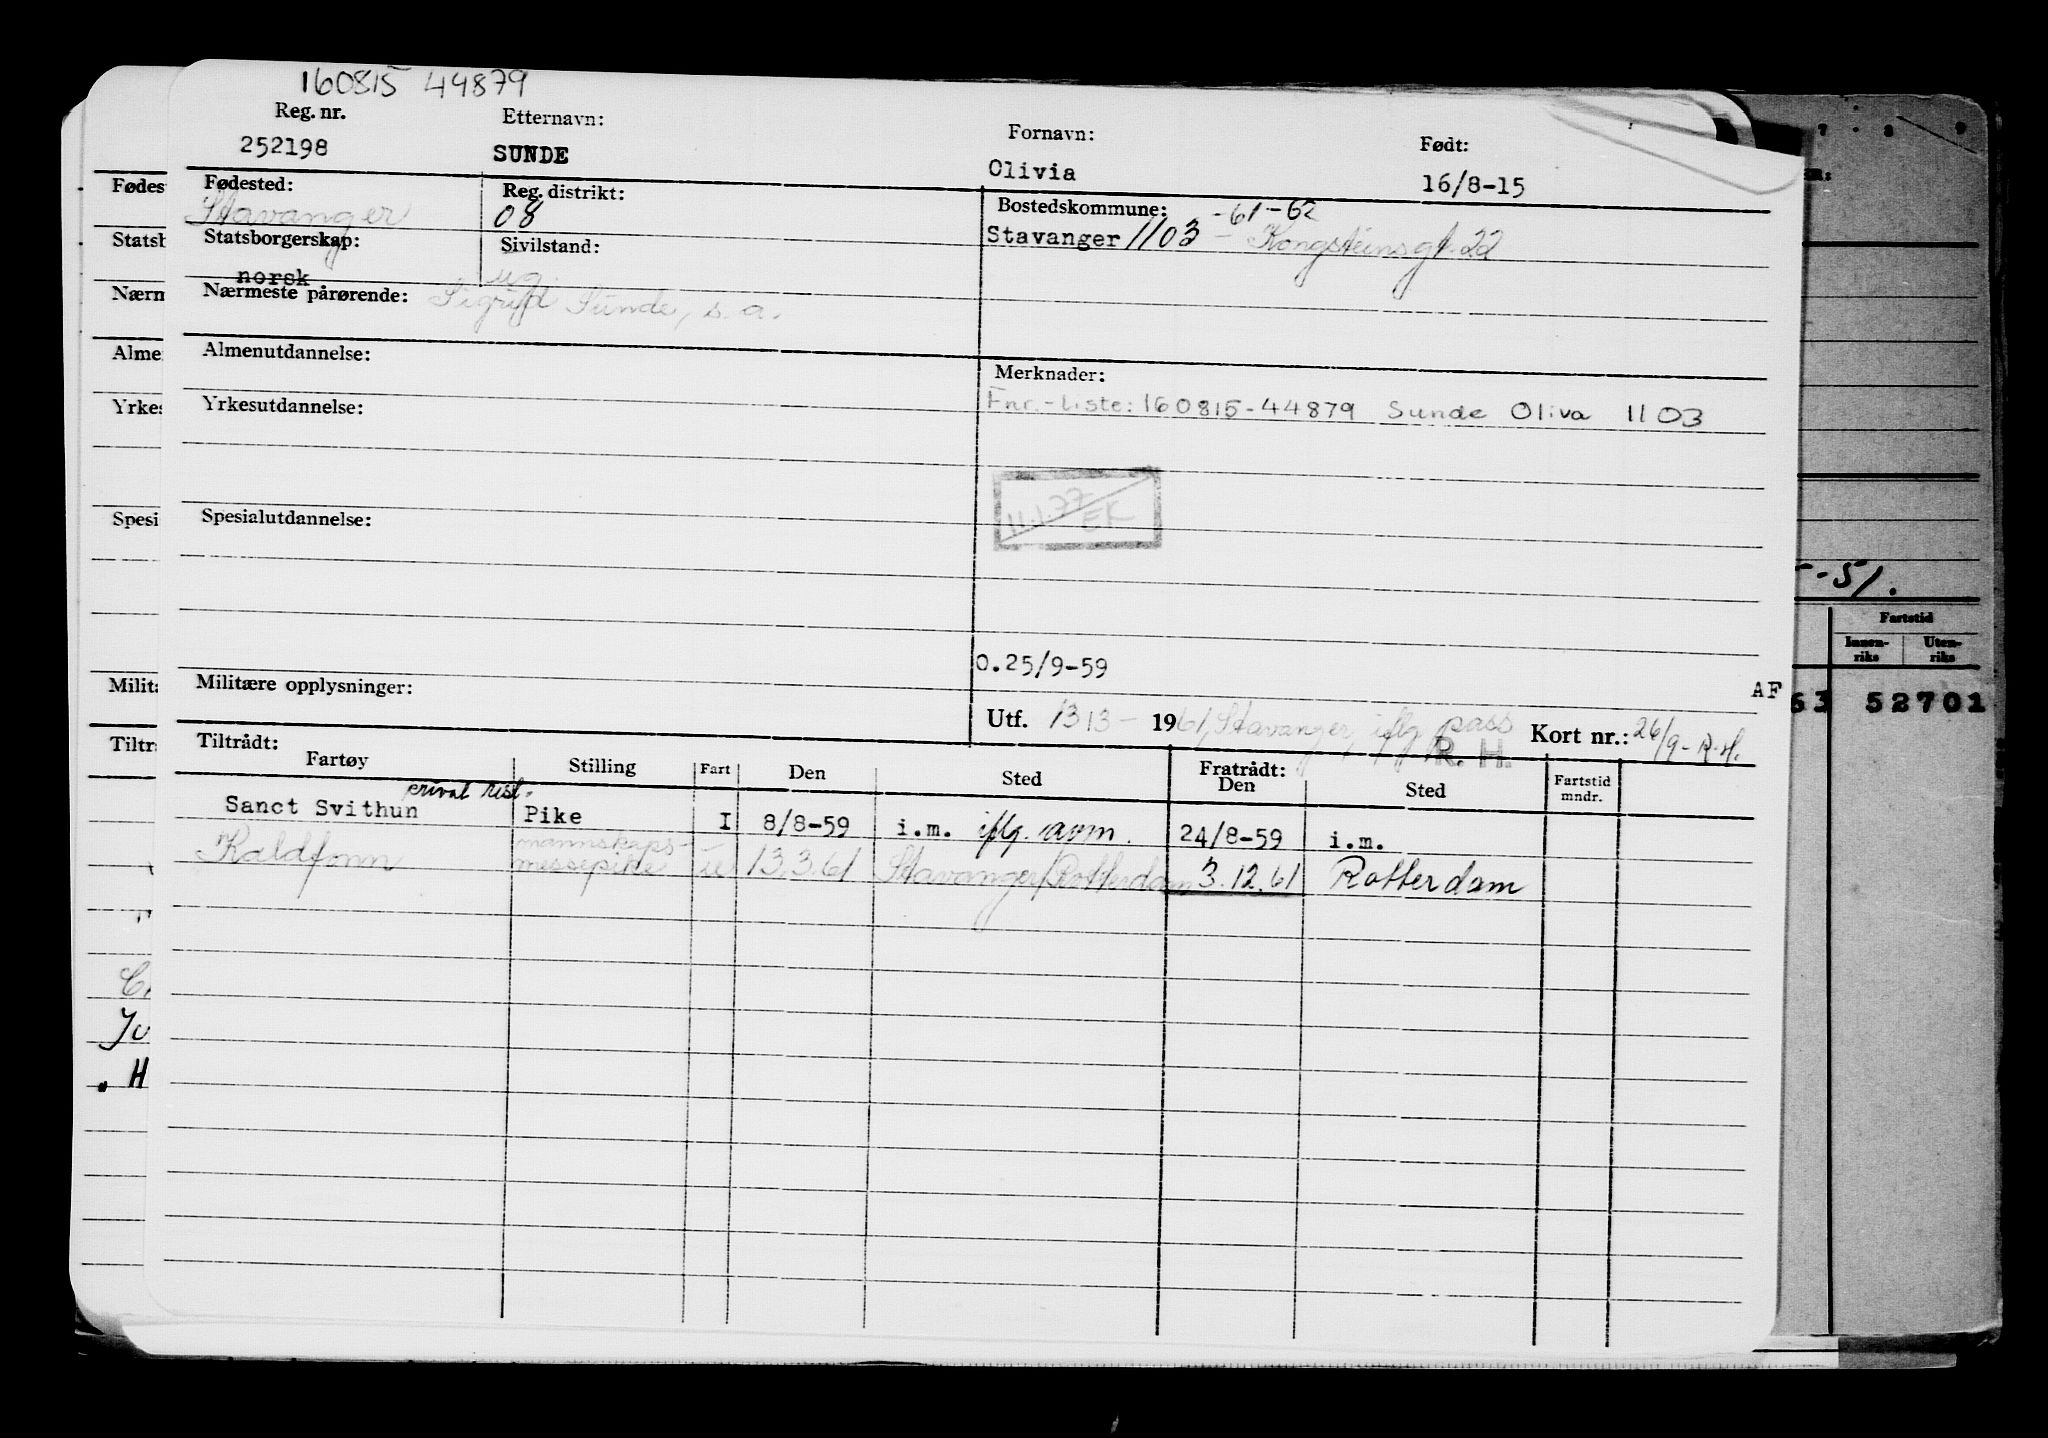 160815 44879
Reg. nr. Etternavn: Fornavn: Født:
252198 SUNDE Olivia 16/8-15
Fødested: Reg. distrikt: Bostedskommune: -61-62
Stavanger 08 Stavanger 1103 - Kongsteinsgt. 22
Statsborgerskap: Sivilstand:
norsk ug.
Nærmeste pårørende: Sigrid Sunde, s.a.
Almenutdannelse: Merknader:
Yrkesutdannelse: Fnr.-liste: 160815-44879 Sunde Oliva 1103
11.1.77 EK
Spesialutdannelse:
O.25/9-59
Militære opplysninger: AF
Utf. 13/3- 1961, Stavanger, iflg pass Kort nr.: 26/9-R.H.
R. H.
Tiltrådt: Fratrådt:
Fartøy Stilling Fart Den Sted Den Sted Fartstid mndr.
Sanct Svithun Pike I 8/8-59 i.m. iflg. 24/8-59 i.m.
Kaldfonn mannskaps-messepike u 13.3.61 Stavanger/Rotterdam 3.12.61 Rotterdam
Fødes
Statsb
Nærm
Alme
Yrkes
Spesi
Milita
Tiltr
Ju
. H
7 - 8 9
-51.
Fartstid
Innen-riks Uten-riks
63 52701